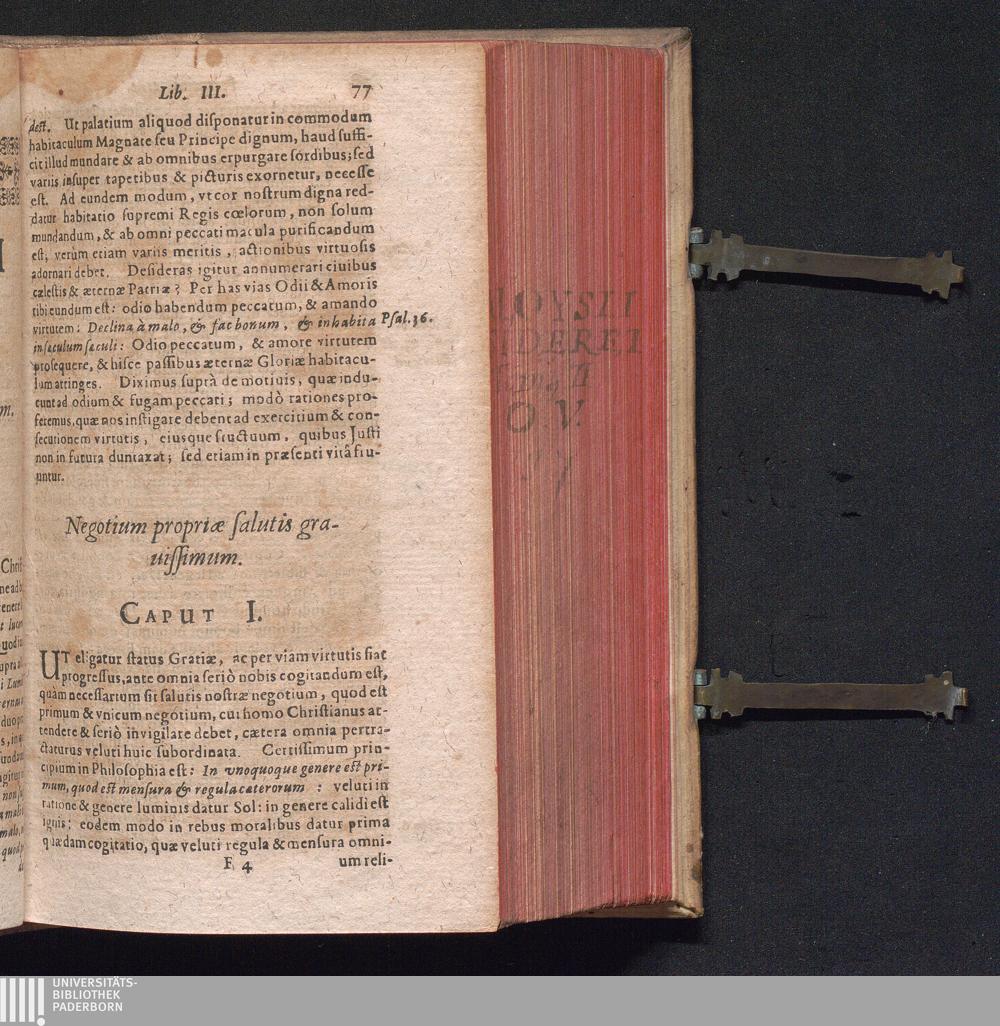 Lib. III. 77
dest. Ut palatium aliquod disponatur in commodum
habitaculum Magnate seu Principe dignum, haud suffi-
cit illud mundare & ab omnibus erpurgare sordibus; sed
variis insuper tapetibus & picturis exornetur, necesse
est. Ad eundem modum, vt cor nostrum digna red-
datur habitatio supremi Regis cœlorum, non solum
mundandum, & ab omni peccati macula purificandum
est, verùm etiam variis meritis, actionibus virtuosis
adornari debet. Desideras igitur annumerari ciuibus
cælestis & æternæ Patriæ? Per has vias Odii & Amoris
tibi eundum est: odio habendum peccatum, & amando
virtutem: Declina à malo, & fac bonum, & inhabita Psal. 36.
in sæculum sæculi: Odio peccatum, & amore virtutem
prosequere, & hisce passibus æternæ Gloriæ habitacu-
lum attinges. Diximus suprà de motiuis, quæ indu-
cunt ad odium & fugam peccati; modò rationes pro-
feremus, quæ nos instigare debent ad exercitium & con-
secutionem virtutis, eiusque fructuum, quibus Justi
non in futura duntaxat; sed etiam in præsenti vitâ fru-
untur.
Negotium propriæ salutis gra-
uissimum.
CAPUT I.
UT eligatur status Gratiæ, ac per viam virtutis fiat
progressus, ante omnia seriò nobis cogitandum est,
quàm necessarium sit salutis nostræ negotium, quod est
primum & vnicum negotium, cui homo Christianus at-
tendere & seriò invigilare debet, cætera omnia pertra-
ctaturus veluti huic subordinata. Certissimum prin-
cipium in Philosophia est: In vnoquoque genere est pri-
mum, quod est mensura & regula cæterorum: veluti in
ratione & genere luminis datur Sol: in genere calidi est
ignis: eodem modo in rebus moralibus datur prima
quædam cogitatio, quæ veluti regula & mensura omni-
F 4 um reli-
LOYSII
DEREI
II
O. V.
UNIVERSITÄTS-
BIBLIOTHEK
PADERBORN